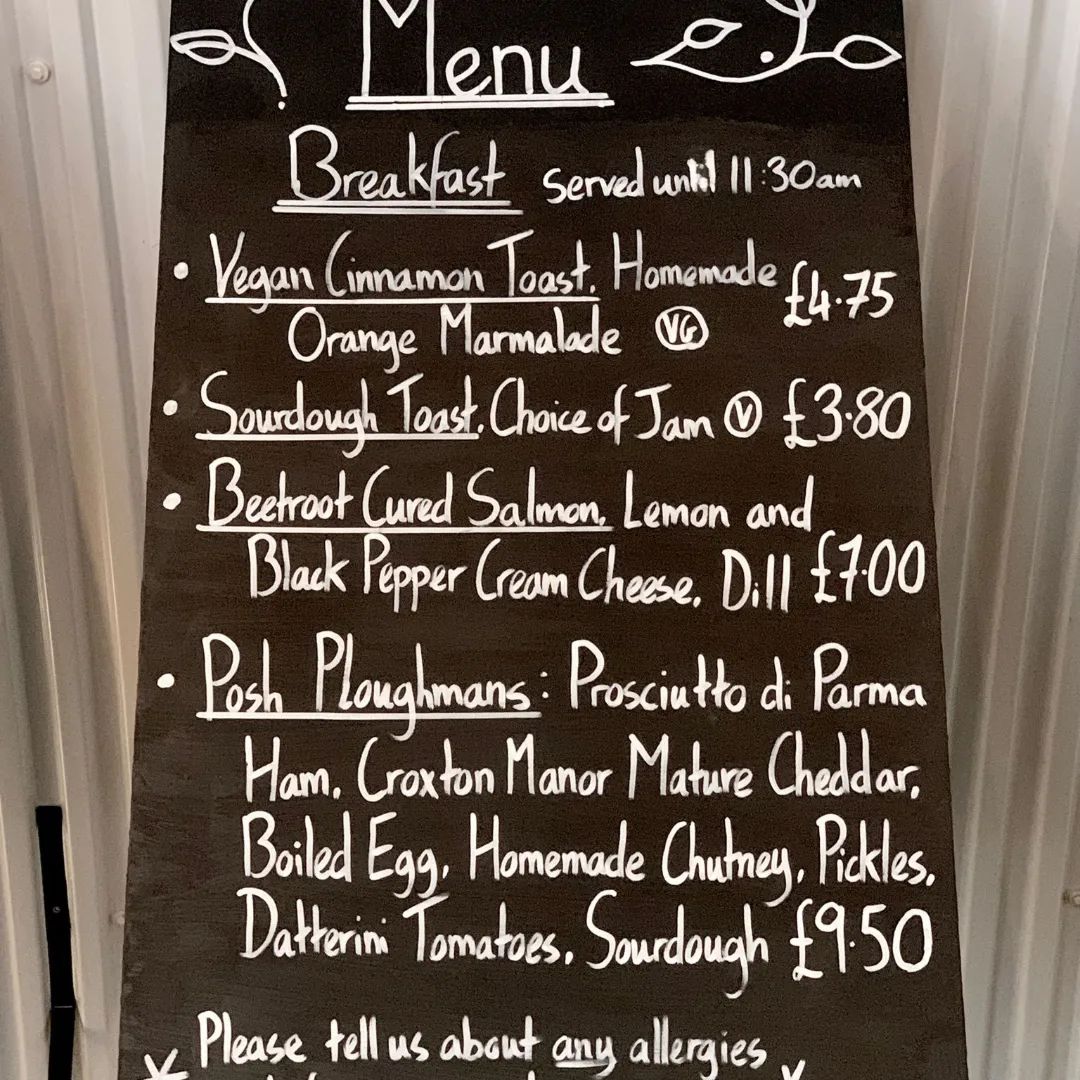 Menu
Breakfast served until 11:30am
• Vegan Cinnamon Toast. Homemade £4.75
Orange Marmalade VG
• Sourdough Toast. Choice of Jam V £3.80
• Beetroot Cured Salmon. Lemon and
Black Pepper Cream Cheese. Dill £7.00
• Posh Ploughmans: Prosciutto di Parma
Ham. Croxton Manor Mature Cheddar.
Boiled Egg. Homemade Chutney. Pickles.
Datterini Tomatoes. Sourdough £9.50
Please tell us about any allergies